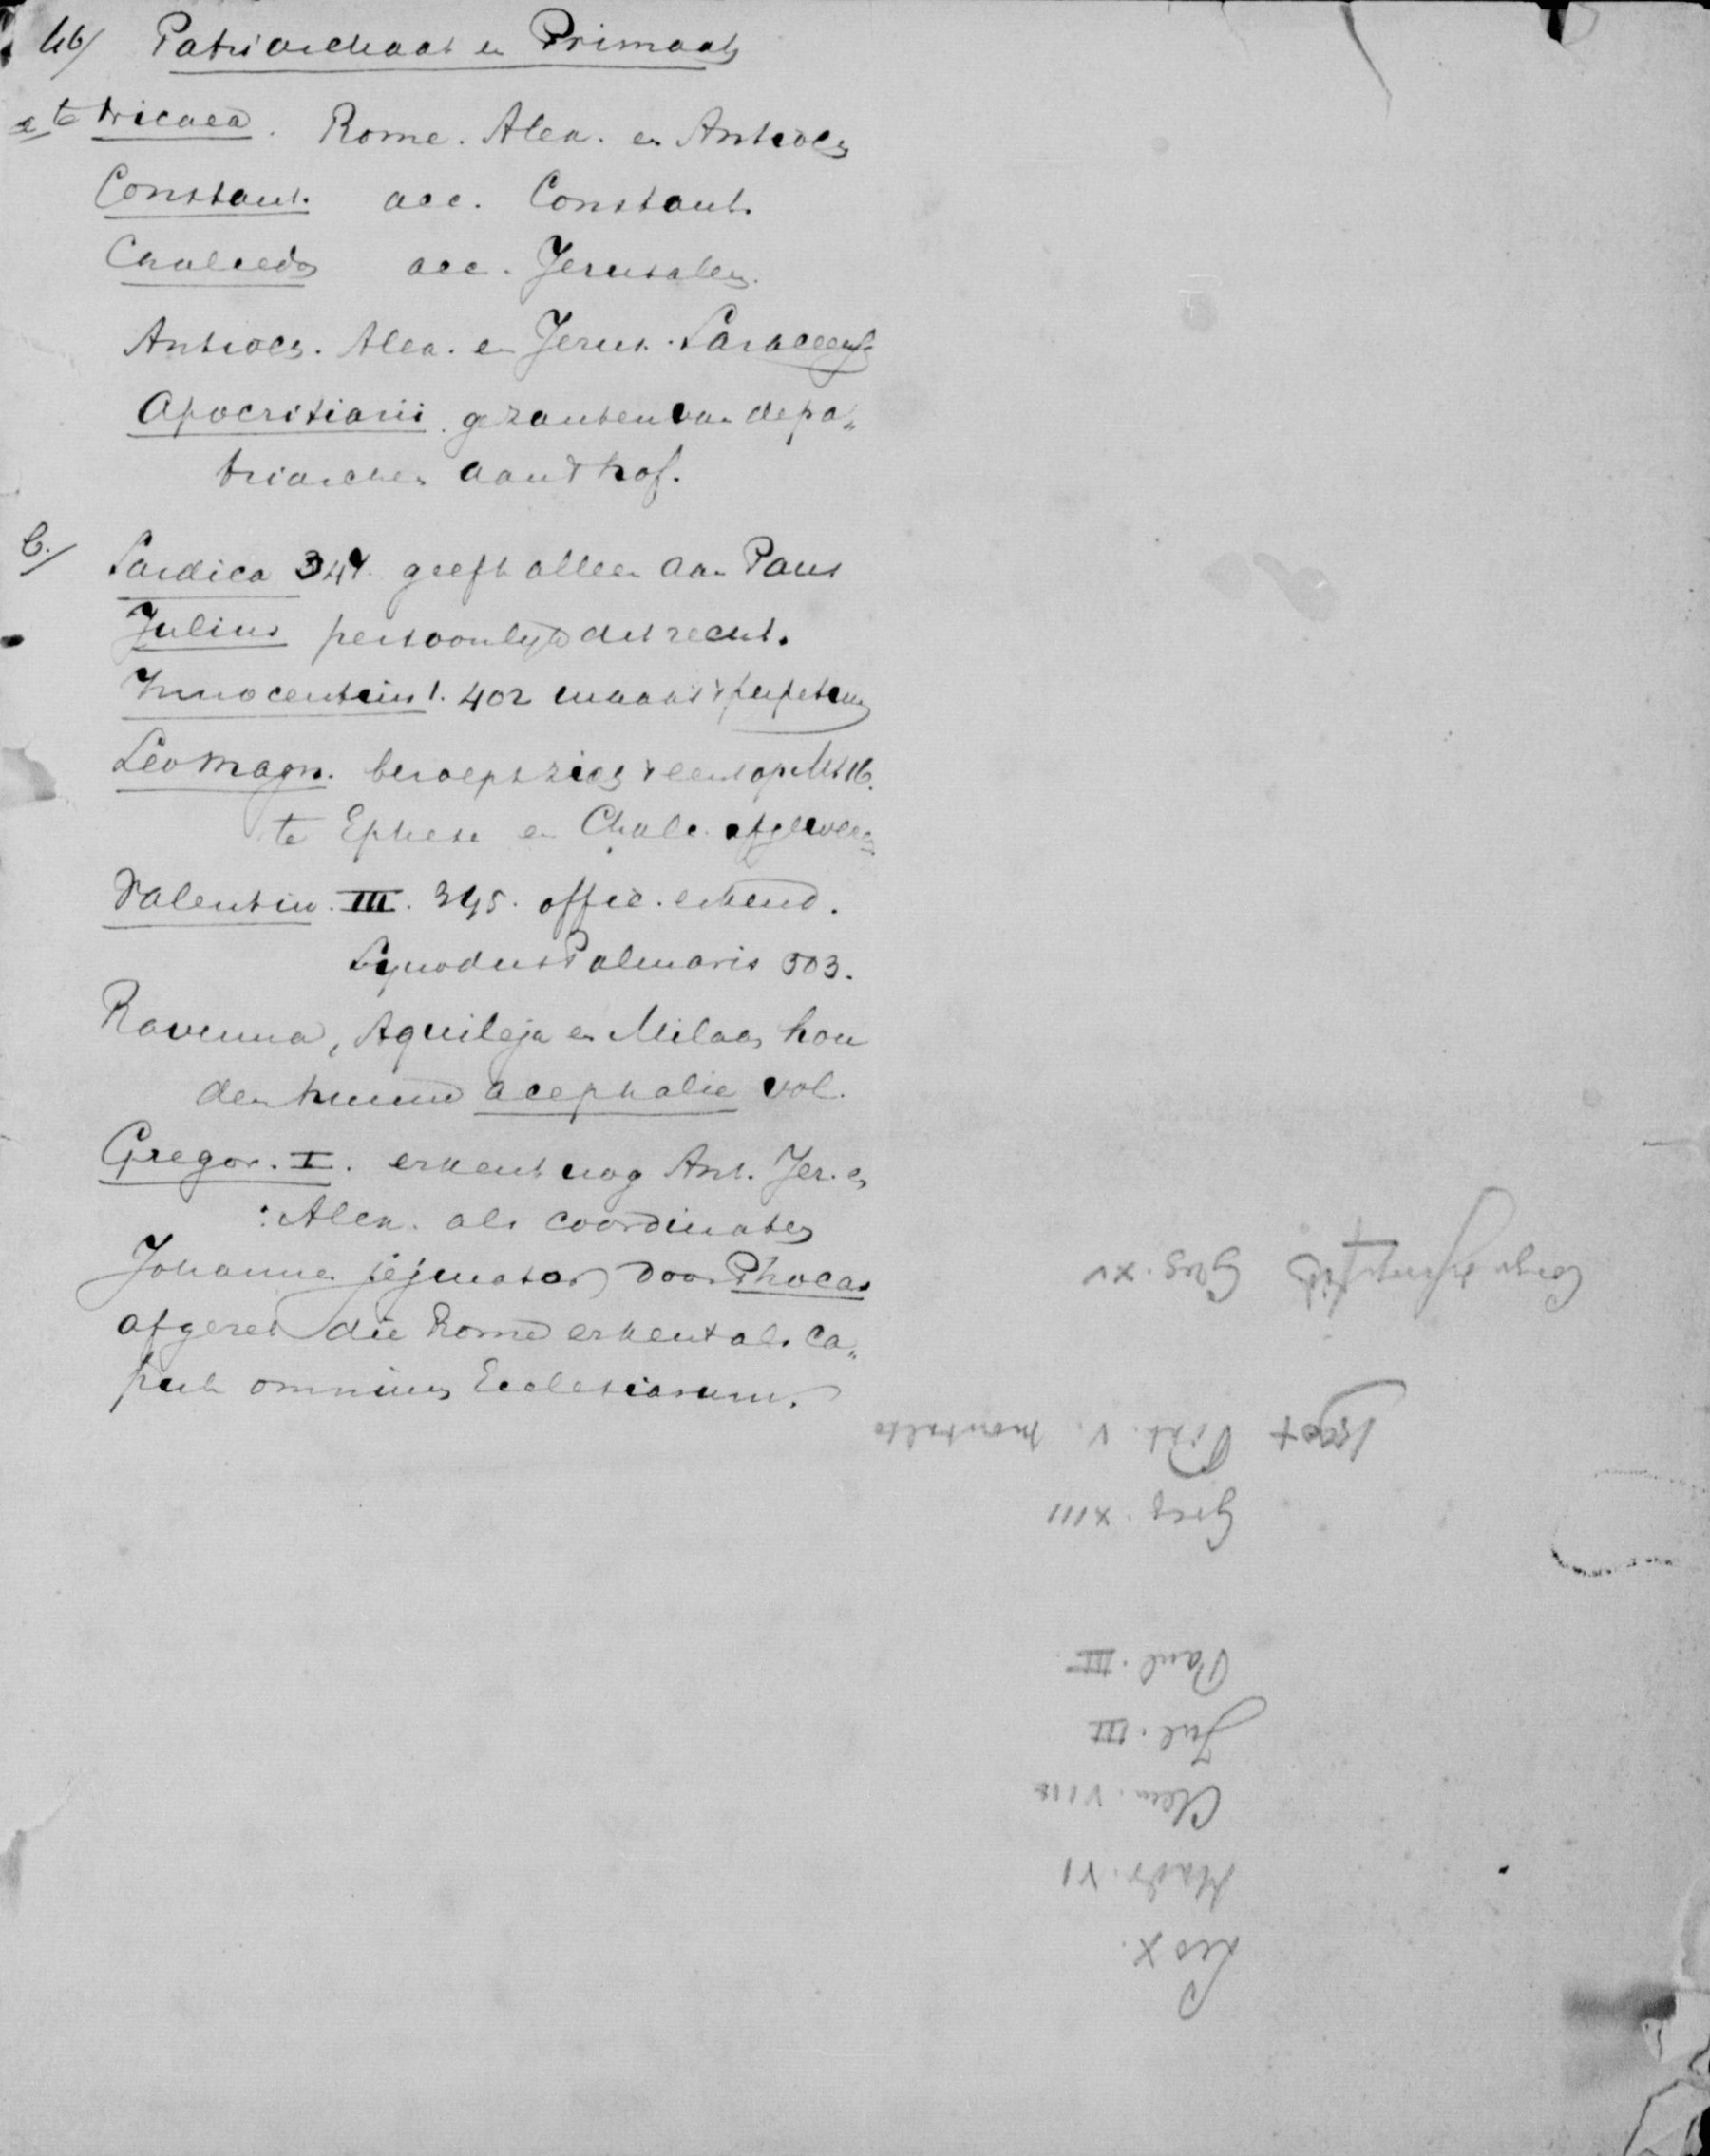 46/ Patriarchaat en Primaat
a te Nicaea. Rome. Alex. en Antioch
Constant. acc. Constant.
Chalcedon acc. Jerusalem.
Antioch. Alex. en Jerus. Saraceens
Apocrisiarii. gezanten van de pa„
triarchen aan 't hof.
b./ Sardica 347. geeft alleen aan Paus
Julius persoonlijk dit recht.
Innocentius 1. 402 maakt 't perpetuum
Leo Magn. beroept zich 't eerst op Mt 16.
te Ephese en Chalc. afgewezen
Valentin. III. 445. offic. erkend.
Synodus Palmaris 503.
Ravenna, Aquileja en Milaan hou
den hunne acephalie vol.
Gregor. I. erkent nog Ant. Jer. en
: Alex. als coordinaten
Johannes jejunator door Phocas
afgezet die Rome erkent als Ca„
put omnium Ecclesiarum.
Leo X.
Hadr. VI
Clem. VIII
Jul. III
Paul. III
Greg. XIII
1590 + Sixt. V. Montalto
Greg. XV